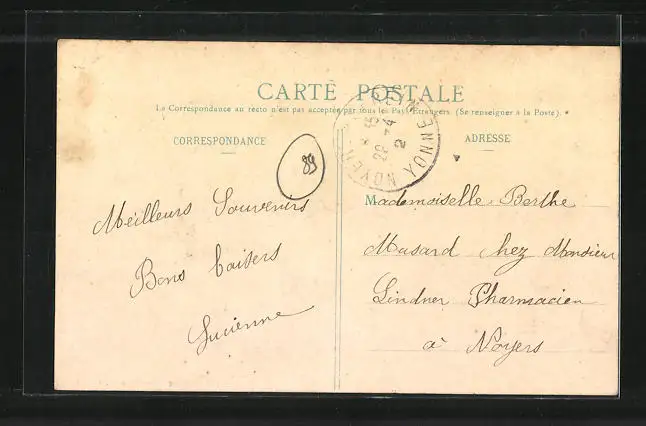 CARTE POSTALE
La Correspondance au recto n'est pas acceptée par tous les Pays Etrangers. (Se renseigner à la Poste).
CORRESPONDANCE
ADRESSE
89
Meilleurs Souvenirs
Bons baisers
Lucienne
NOYERS YONNE
28
2
Mademoiselle Berthe
Musard chez Monsieur
Lindner Pharmacien
à Noyers